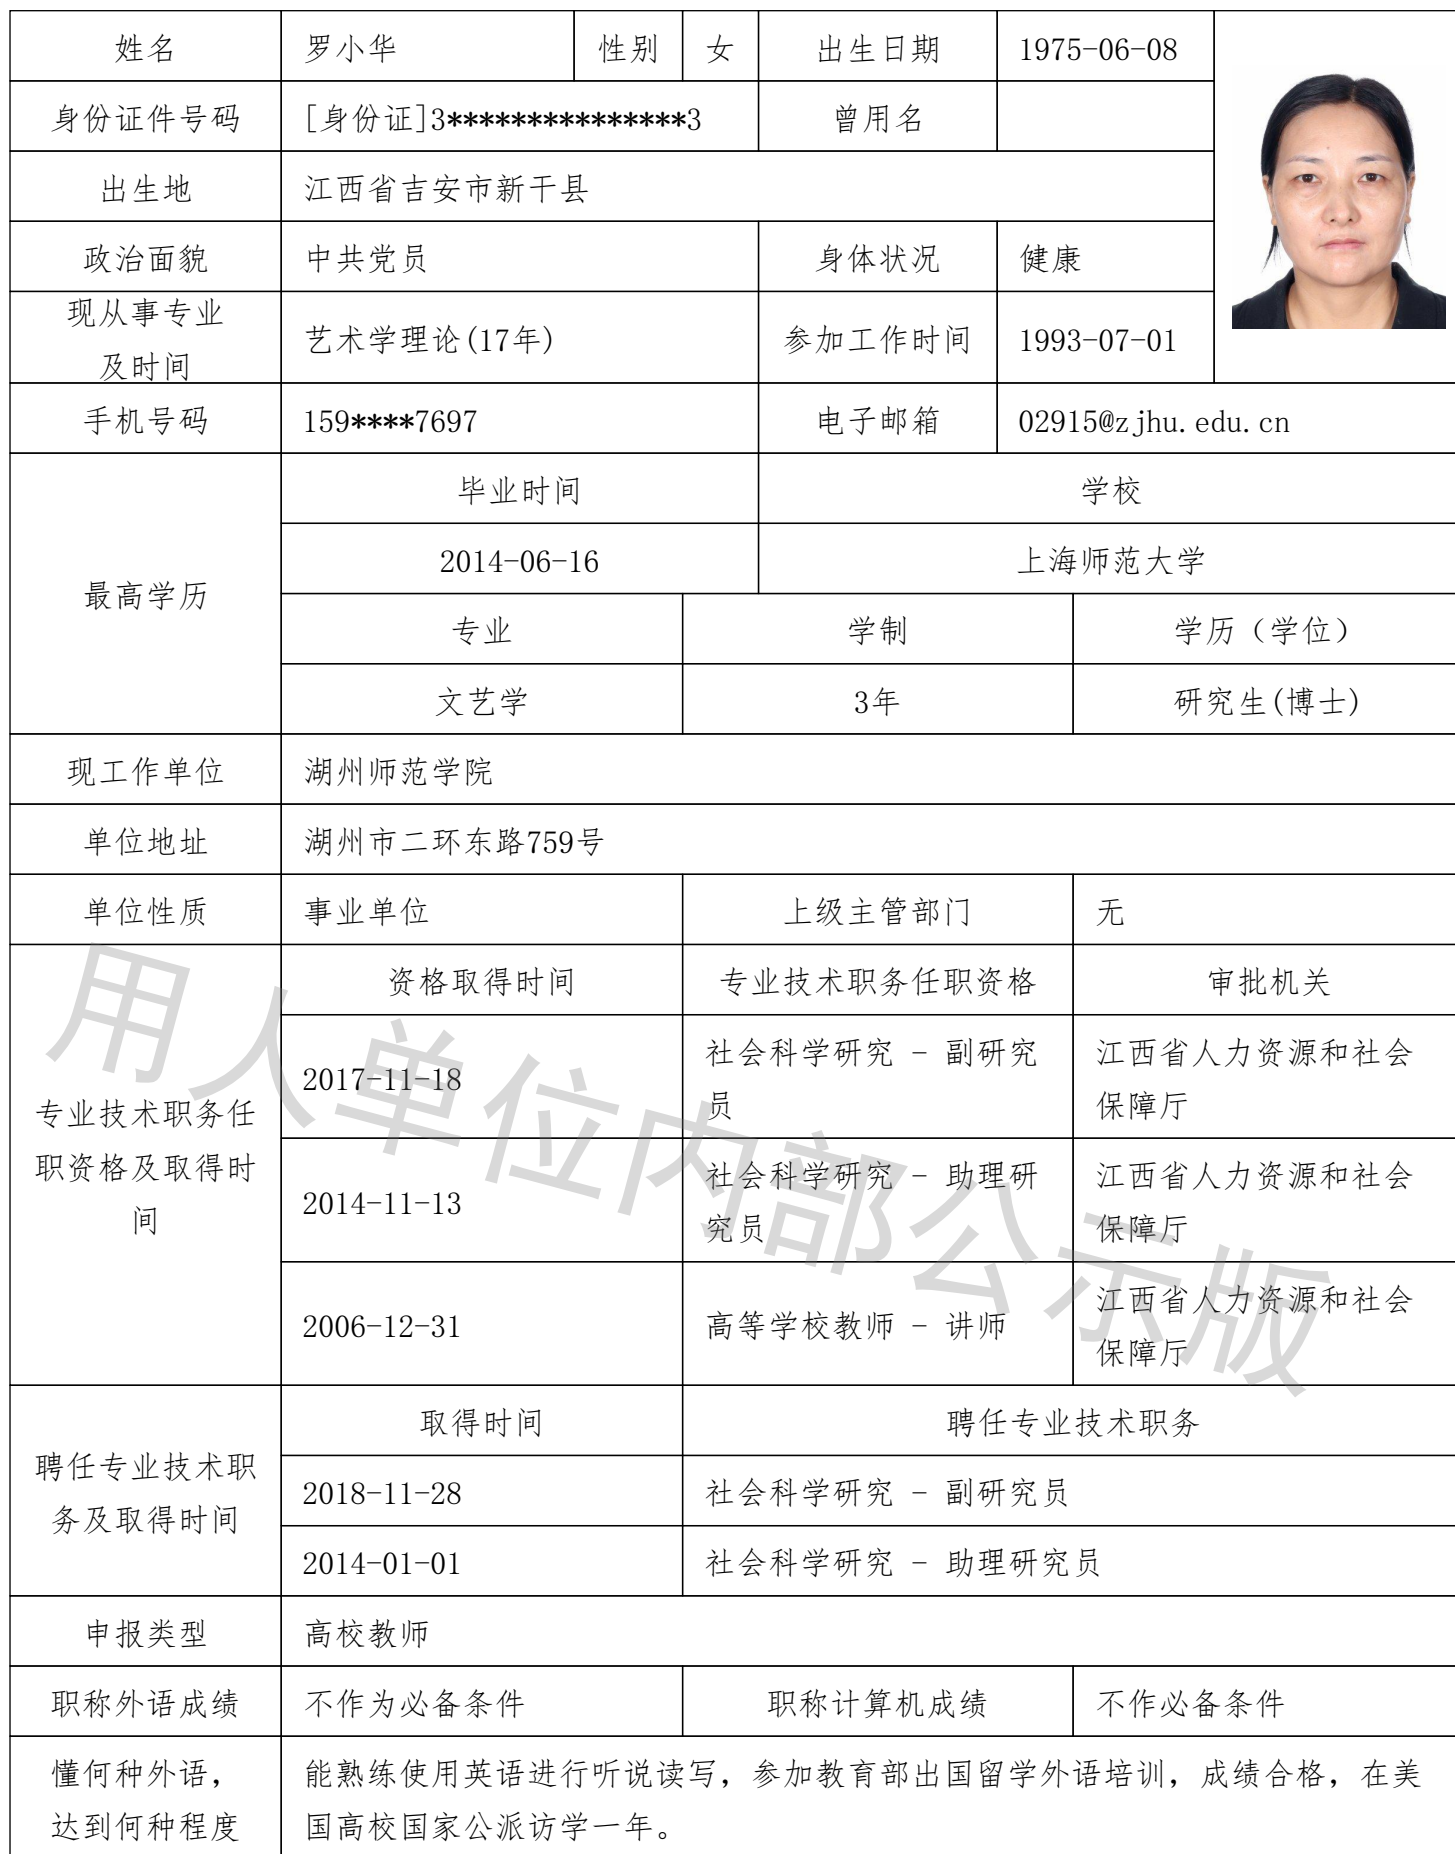 姓名 罗小华 性别 女 出生日期 1975-06-08
身份证件号码 [身份证]3***************3 曾用名
出生地 江西省吉安市新干县
政治面貌 中共党员 身体状况 健康
现从事专业
及时间
艺术学理论(17年) 参加工作时间 1993-07-01
手机号码 159****7697 电子邮箱 02915@zjhu.edu.cn
最高学历
毕业时间 学校
2014-06-16 上海师范大学
专业 学制 学历（学位）
文艺学 3年 研究生(博士)
现工作单位 湖州师范学院
单位地址 湖州市二环东路759号
单位性质 事业单位 上级主管部门 无
专业技术职务任
职资格及取得时
间
资格取得时间 专业技术职务任职资格 审批机关
2017-11-18
社会科学研究 - 副研究
员
江西省人力资源和社会
保障厅
2014-11-13
社会科学研究 - 助理研
究员
江西省人力资源和社会
保障厅
2006-12-31 高等学校教师 - 讲师
江西省人力资源和社会
保障厅
聘任专业技术职
务及取得时间
取得时间 聘任专业技术职务
2018-11-28 社会科学研究 - 副研究员
2014-01-01 社会科学研究 - 助理研究员
申报类型 高校教师
职称外语成绩 不作为必备条件 职称计算机成绩 不作必备条件
懂何种外语，
达到何种程度
能熟练使用英语进行听说读写，参加教育部出国留学外语培训，成绩合格，在美
国高校国家公派访学一年。
用人单位内部公示版